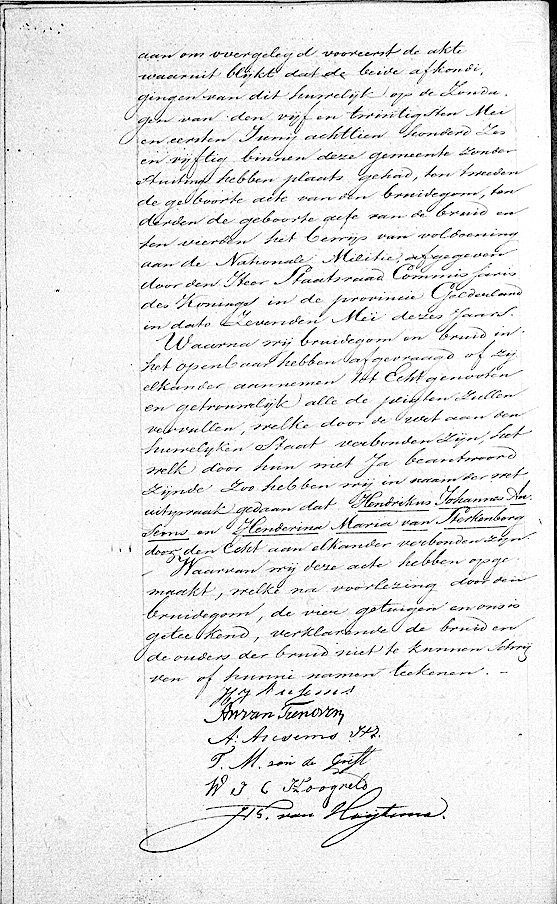 aan ons overgelegd vooreerst de akte
waaruit blijkt dat de beide afkondi,
gingen van dit huwelijk op de Zonda,
gen van den vijf en twintigsten Mei
en eersten Junij achttien honderd Zes
en vijftig binnen deze gemeente zonder
Stuiting hebben plaats gehad, ten tweeden
de geboorte acte van den bruidegom, ten
derden de geboorte acte van de bruid en
ten vierden het bewijs van voldoening
aan de Nationale Militie, afgegeven
door den Heer Staatsraad Commissaris
des Konings in de provincie Gelderland
in dato Zevenden Mei dezes Jaars.
Waarna wij bruidegom en bruid in
het openbaar hebben afgevraagd of zij
elkander aannemen tot Echtgenooten
en getrouwelijk alle de pligten zullen
vervullen, welke door de wet aan den
huwelijken Staat verbonden zijn, het
welk door hun met Ja beantwoord
zijnde zoo hebben wij in naam der wet
uitspraak gedaan dat Hendrikus Johannes Au
sems en Henderina Maria van Sterkenburg
door den Echt aan elkander verbonden zijn.
Waarvan wij deze acte hebben opge
maakt, welke na voorlezing door den
bruidegom, de vier getuigen en ons is
geteekend, verklarende de bruid en
de ouders der bruid niet te kunnen Schrij
ven of hunne namen teekenen. –
HJ Ausems
An van
A. Ausems JHz.
T. M. van de Grift
W J C Hoogveld
van